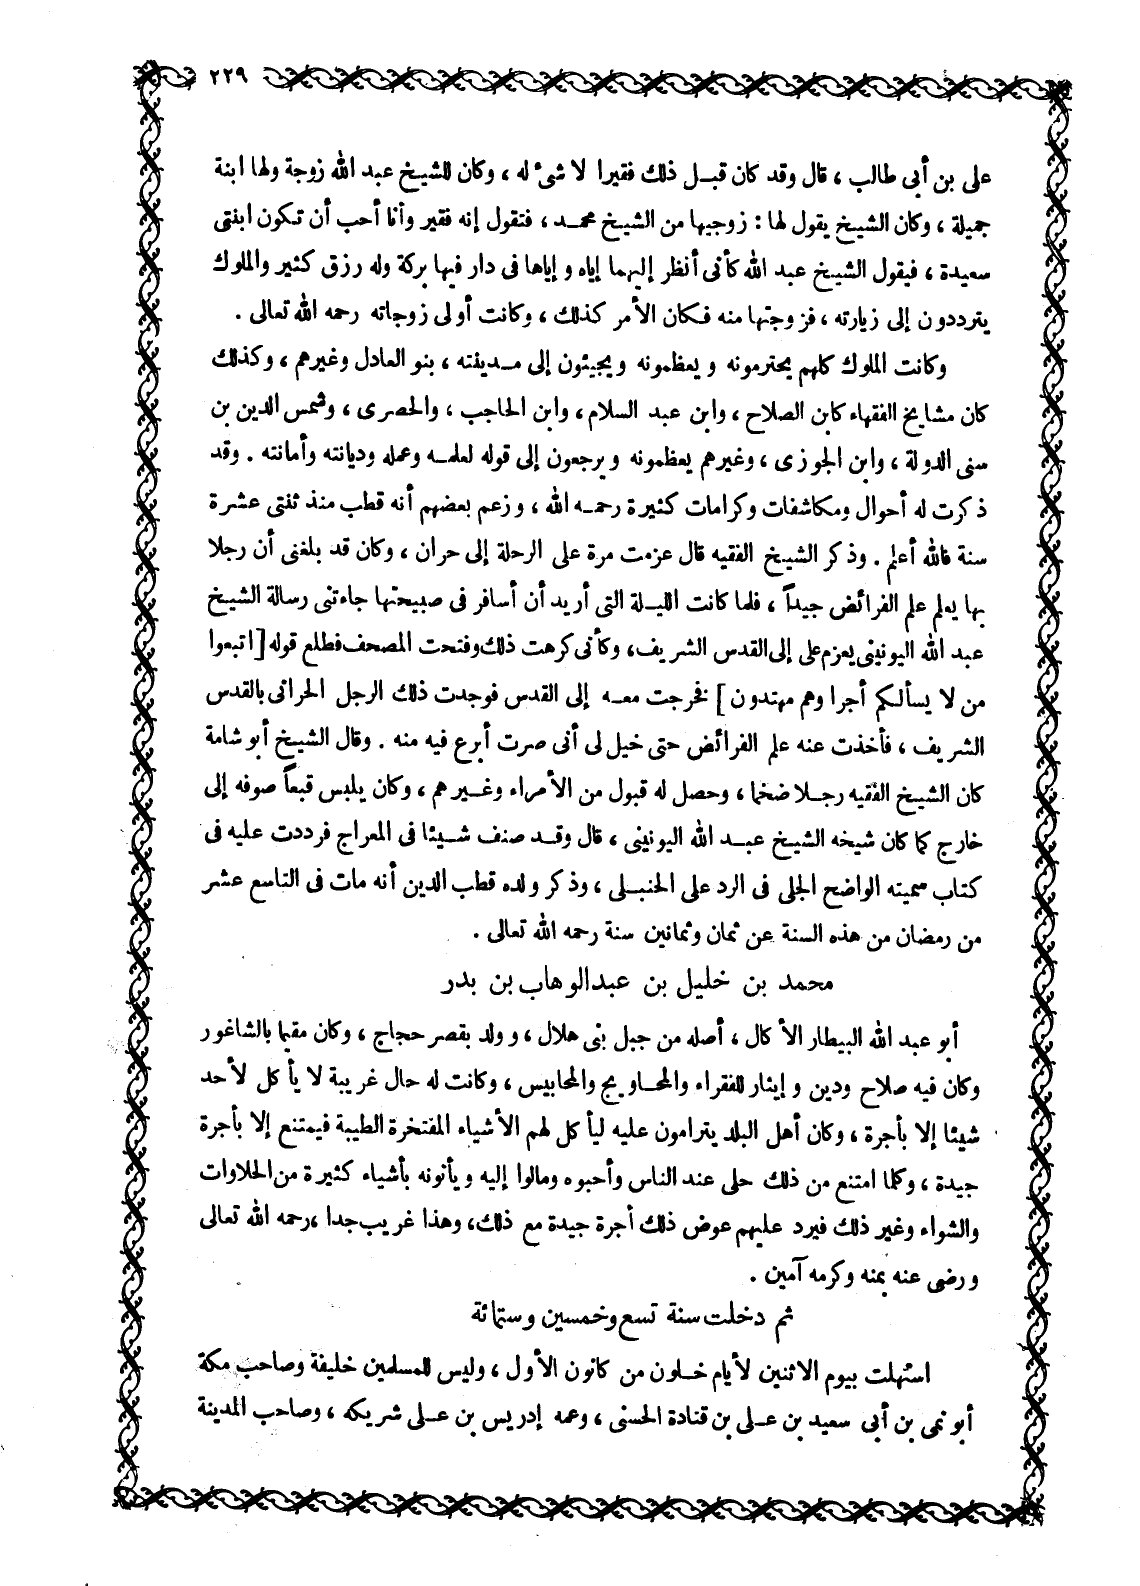 ٢٢٩
على بن أبى طالب ، قال وقد كان قبل ذلك فقيرا لا شئ له ، وكان للشيخ عبد الله زوجة ولها ابنة
جميلة ، وكان الشيخ يقول لها : زوجيها من الشيخ محمد ، فتقول إنه فقير وأنا أحب أن تكون ابنتى
سعيدة ، فيقول الشيخ عبد الله كأنى أنظر إليهما إياه و إياها فى دار فيها بركة وله رزق كثير والملوك
يترددون إلى زيارته ، فزوجتها منه فكان الأمر كذلك ، وكانت أولى زوجاته رحمه الله تعالى .
وكانت الملوك كلهم يحترمونه و يعظمونه و يجيئون إلى مدينته ، بنو العادل وغيرهم ، وكذلك
كان مشايخ الفقهاء كابن الصلاح ، وابن عبد السلام ، وابن الحاجب ، والحصرى ، وشمس الدين بن
سنى الدولة ، وابن الجوزى ، وغيرهم يعظمونه و يرجعون إلى قوله لعلمه وعمله وديانته وأمانته . وقد
ذكرت له أحوال ومكاشفات وكرامات كثيرة رحمه الله ، وزعم بعضهم أنه قطب منذ ثنتى عشرة
سنة فالله أعلم . وذكر الشيخ الفقيه قال عزمت مرة على الرحلة إلى حران ، وكان قد بلغنى أن رجلا
بها يعلم علم الفرائض جيداً ، فلما كانت الليلة التى أريد أن أسافر فى صبيحتها جاءتنى رسالة الشيخ
عبد الله اليونينى يعزم على إلى القدس الشريف ، وكأنى كرهت ذلك وفتحت المصحف فطلع قوله [ اتبعوا
من لا يسألكم أجرا وهم مهتدون ] فخرجت معه إلى القدس فوجدت ذلك الرجل الحرانى بالقدس
الشريف ، فأخذت عنه علم الفرائض حتى خيل لى أنى صرت أبرع فيه منه . وقال الشيخ أبو شامة
كان الشيخ الفقيه رجلا ضخما ، وحصل له قبول من الأمراء وغيرهم ، وكان يلبس قبعاً صوفه إلى
خارج كما كان شيخه الشيخ عبد الله اليونينى ، قال وقد صنف شيئا فى المعراج فرددت عليه فى
كتاب سميته الواضح الجلى فى الرد على الحنبلى ، وذكر ولده قطب الدين أنه مات فى التاسع عشر
من رمضان من هذه السنة عن ثمان وثمانين سنة رحمه الله تعالى .
محمد بن خليل بن عبدالوهاب بن بدر
أبو عبد الله البيطار الأكال ، أصله من جبل بنى هلال ، وولد بقصر حجاج ، وكان مقيما بالشاغور
وكان فيه صلاح ودين و إيثار للفقراء والمحاويج والمحابيس ، وكانت له حال غريبة لا يأكل لأحد
شيئا إلا بأجرة ، وكان أهل البلد يترامون عليه ليأكل لهم الأشياء المفتخرة الطيبة فيمتنع إلا بأجرة
جيدة ، وكلما امتنع من ذلك حلى عند الناس وأحبوه ومالوا إليه و يأتونه بأشياء كثيرة من الحلاوات
والشواء وغير ذلك فيرد عليهم عوض ذلك أجرة جيدة مع ذلك ، وهذا غريب جدا ، رحمه الله تعالى
ورضى عنه بمنه وكرمه آمين .
ثم دخلت سنة تسع وخمسين وستمائة
استهلت بيوم الاثنين لأيام خلون من كانون الأول ، وليس للمسلمين خليفة وصاحب مكة
أبو نمى بن أبى سعيد بن على بن قتادة الحسنى ، وعمه إدريس بن على شريكه ، وصاحب المدينة